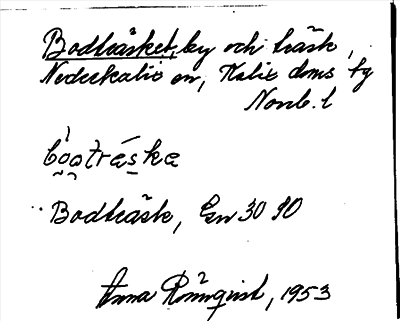 Bodträsket, by och träsk,
Nederkalix sn, Kalix doms tg
Norrb. l
bo̯o̯träska
Bodträsk, Gn 30 90
Anna Rönnqvist, 1953